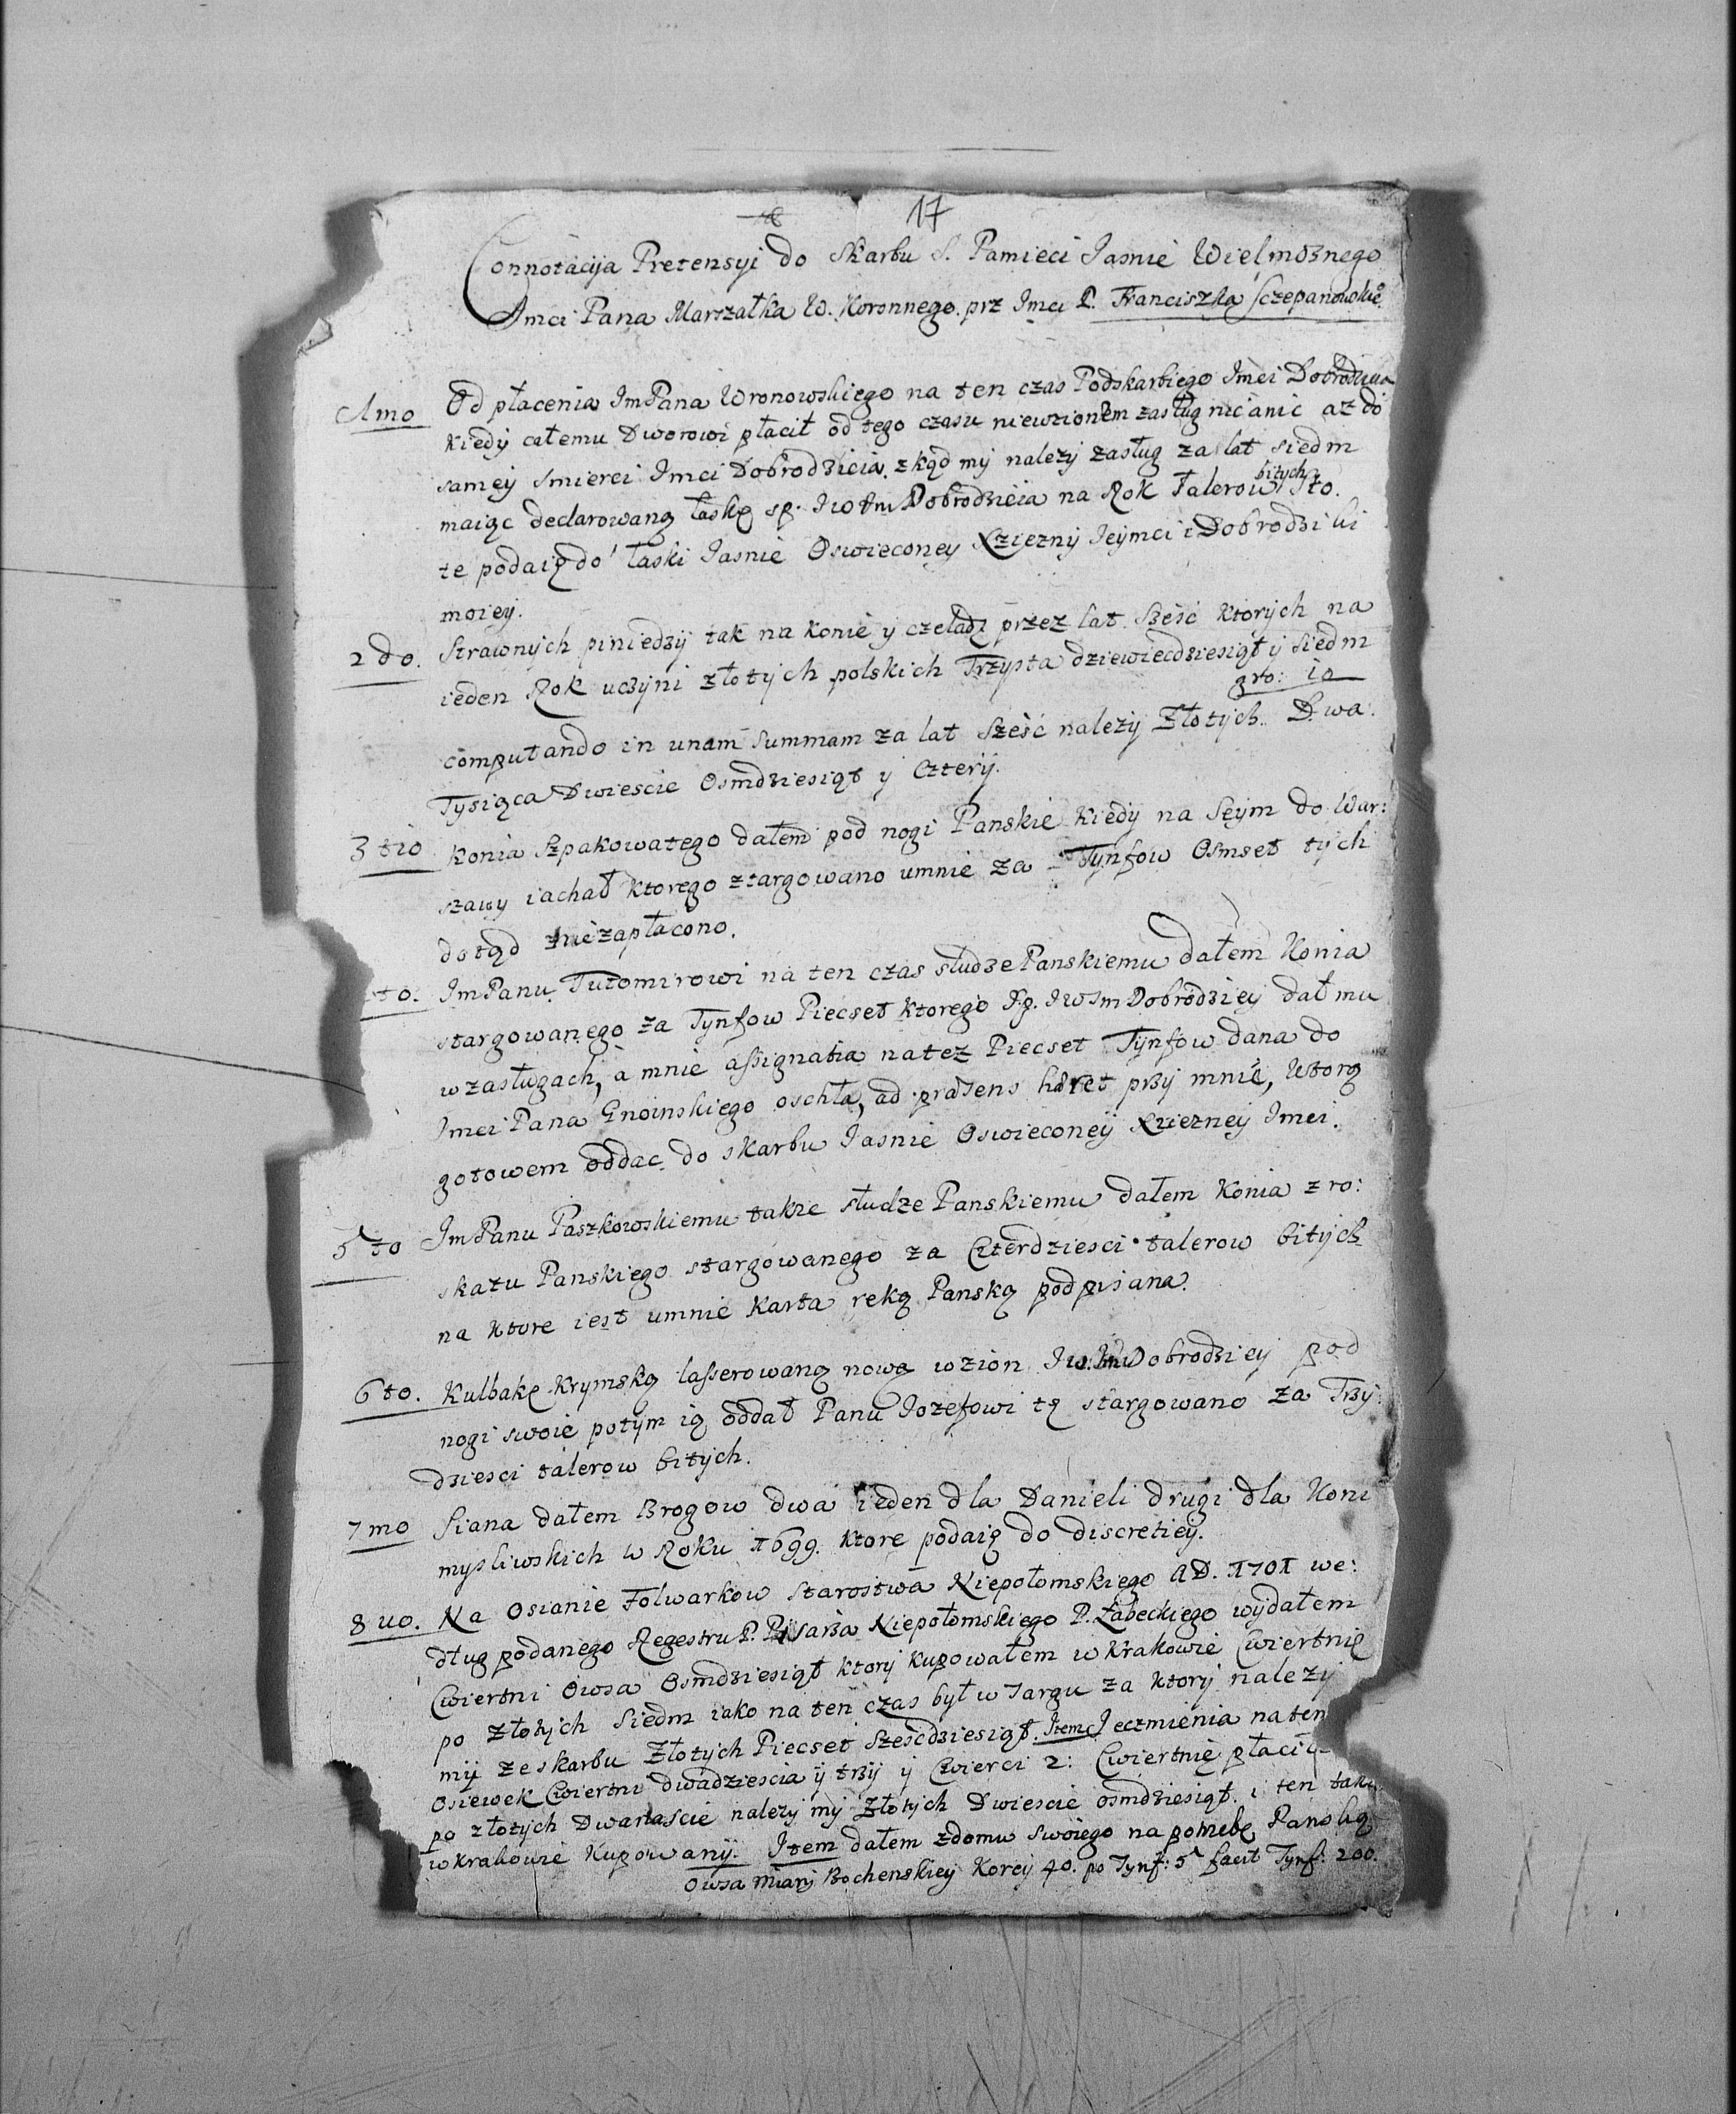 17
Connotacija Pretensyi do Skarbu S. Pamieci Jasnie Wielmoznego
Jmci Pana Marszałka W. Koronnego. prz Jmci P. Franciszka Sczepanowskie͠
1mo Od płacenia JmPana Wronowskiego na ten czas Podskarbiego Jmci Dobrodzieia
kiedy całemu Dworowi płacił od tego czasu niewzionłem zasług nic a nic aż do
samey smierci Jmci Dobrodzieia. zkąd my nalezy zasług za lat siedm
maiąc declarowaną łaskę sp. Jw Jm Dobrodzieia na Rok Talerow bitych Sto.
te podaię do łaski Jasnie Oswieconey Xziezny Jeymci i Dobrodziki
moiey.
2do. Strawnych piniedzy tak na konie y czeladz przez lat Szesć ktorych na
ieden Rok uczyni złotych polskich Trzysta dziewiecdziesiąt y siedm
gro: 10
computando in unam summam za lat Szesć nalezy Złotych. Dwa
Tysiąca Dwiescie Osmdziesiąt y Cztery.
3tio Konia Szpakowatego dałem pod nogi Panskie kiedy na Seym do War:
szawy iachał ktorego ztargowano umnie za Tynfow Osmset tych
dotąd niezapłacono.
to. JmPanu Tutomirowi na ten czas słudze Panskiemu dałem Konia
stargowanego za Tynfow Piecset ktorego s.p. Jw Jm Dobrodziey dał mu
w zasługach, a mnie assignatia na tez Piecset Tynfow dana do
Jmci Pana Gnoinskiego oschła, ad præsens hæret przy mnie, Ktorą
gotowem oddac do skarbu Jasnie Oswieconey Xiezney Jmci.
5to JmPanu Paszkowskiemu takze słudze Panskiemu dałem Konia z ro:
skazu Panskiego stargowanego za Czterdziesci talerow bitych
na ktore iest umnie Karta ręką Panską podpisana.
6to. Kulbakę Krymską lasserowaną nową wzion Jw. Jm Dobrodziey pod
nogi swoie potym ią oddał Panu Jozefowi tę stargowano za Trzy
dziesci talerow bitych.
7mo Siana dałem Brogow dwa ieden dla Danieli drugi dla Koni
mysliwskich w Roku 1699. ktore podaię do discretiey.
8uo. Na Osianie Folwarkow Starostwa Niepołomskiego AD. 1701 we:
dług podanego Regestru P. Pisarza Niepołomskiego P. Łabeckiego wydałem
Cwiertni Owsa Osmdziesiąt ktory kupowałem w Krakowie Cwiertnię
po złotych Siedm iako na ten czas był w Targu za ktory nalezy
my ze skarbu Złotych Piecset Szescdziesiąt. Item Jeczmienia na ten
Osiewek Cwiertni dwadziescia y trzy y Cwierci 2: Cwiertnię płacił
po złotych Dwanascie nalezy my Złotych Dwiescie osmdziesiąt. i ten tak
w Krakowie Kupowany. Item dałem zdomu swoiego na potrzebę Panską
Owsa miary Bochenskiey Korcy 40. po Tynf: 5 facit Tynf: 200.